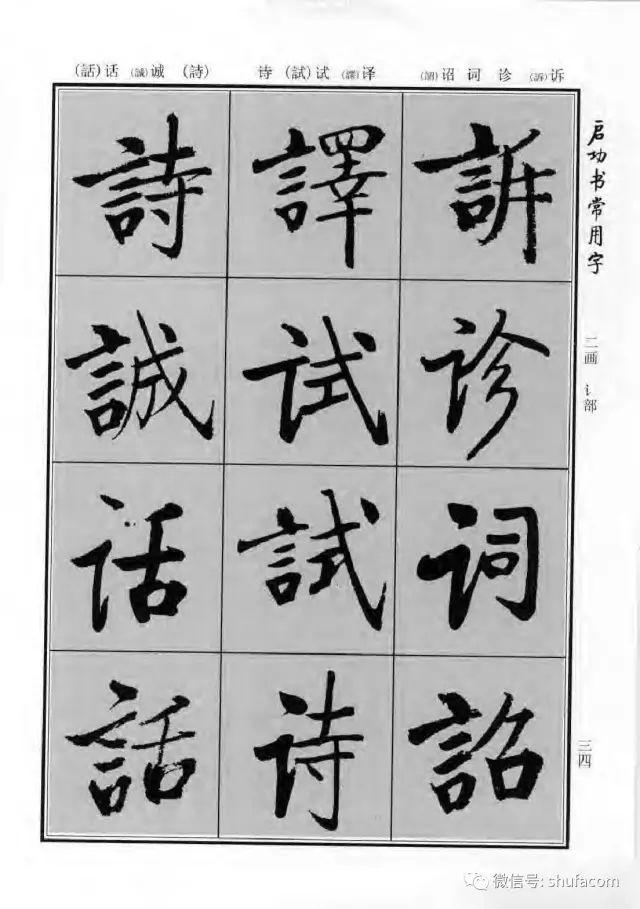 (話)话 (誠)诚 (詩) 诗 (試)试 (譯)译 (詔)诏 词 诊 (訴)诉
启功书常用字
二画 讠部
三四
訴
诊
词
詔
譯
试
試
诗
詩
誠
话
話
微信号: shufacom